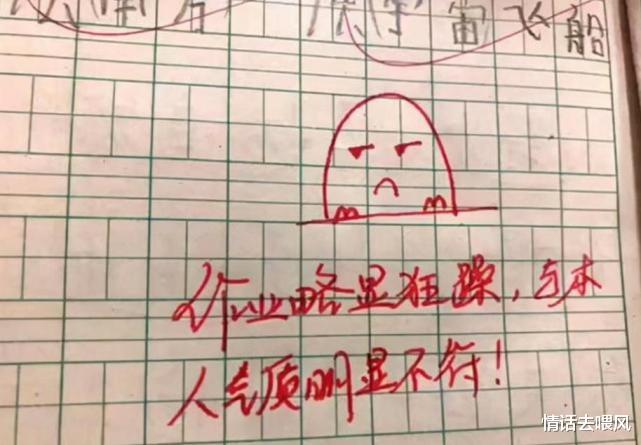 宇宙飞船
作业略显狂躁,与本
人气质明显不符!
情话去喂风